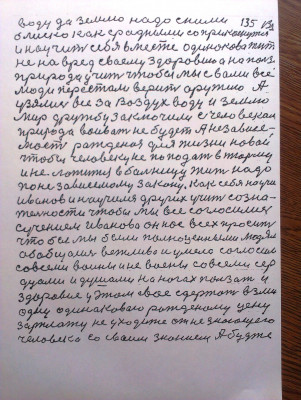 воду да землю надо с ними 135 131
близко как с родними соприкоснутся
и научит себя вместе одинокова жит
не на вред своему здоровию а на полз.
природа учит чтобы мы с вами все
люди перестали верит оружию А
взялис все за воздух воду и землю
мир дружбу заключили с человеком
природа воиват не будет А независи-
мост рожденоя для жизни новой
чтобы человеку не поподат в тюрму
и не ложится в балницу жит надо
по независимому закону. как себя научил
Иванов и научился других учит созна-
телности чтобы мы все согласилис
с учением Иванова он нас всех просит
что бы мы были полноценными людям
обобщалис вежливо и умело согласилис
совсеми воинами не воены совсеми сер
дцами и душами на ногах ползат и
здоровие у этом свое здержат взяли
одну одинаковаю рожденому цену
зарплату не уходите от не знающего
человека со своим знанием А будте